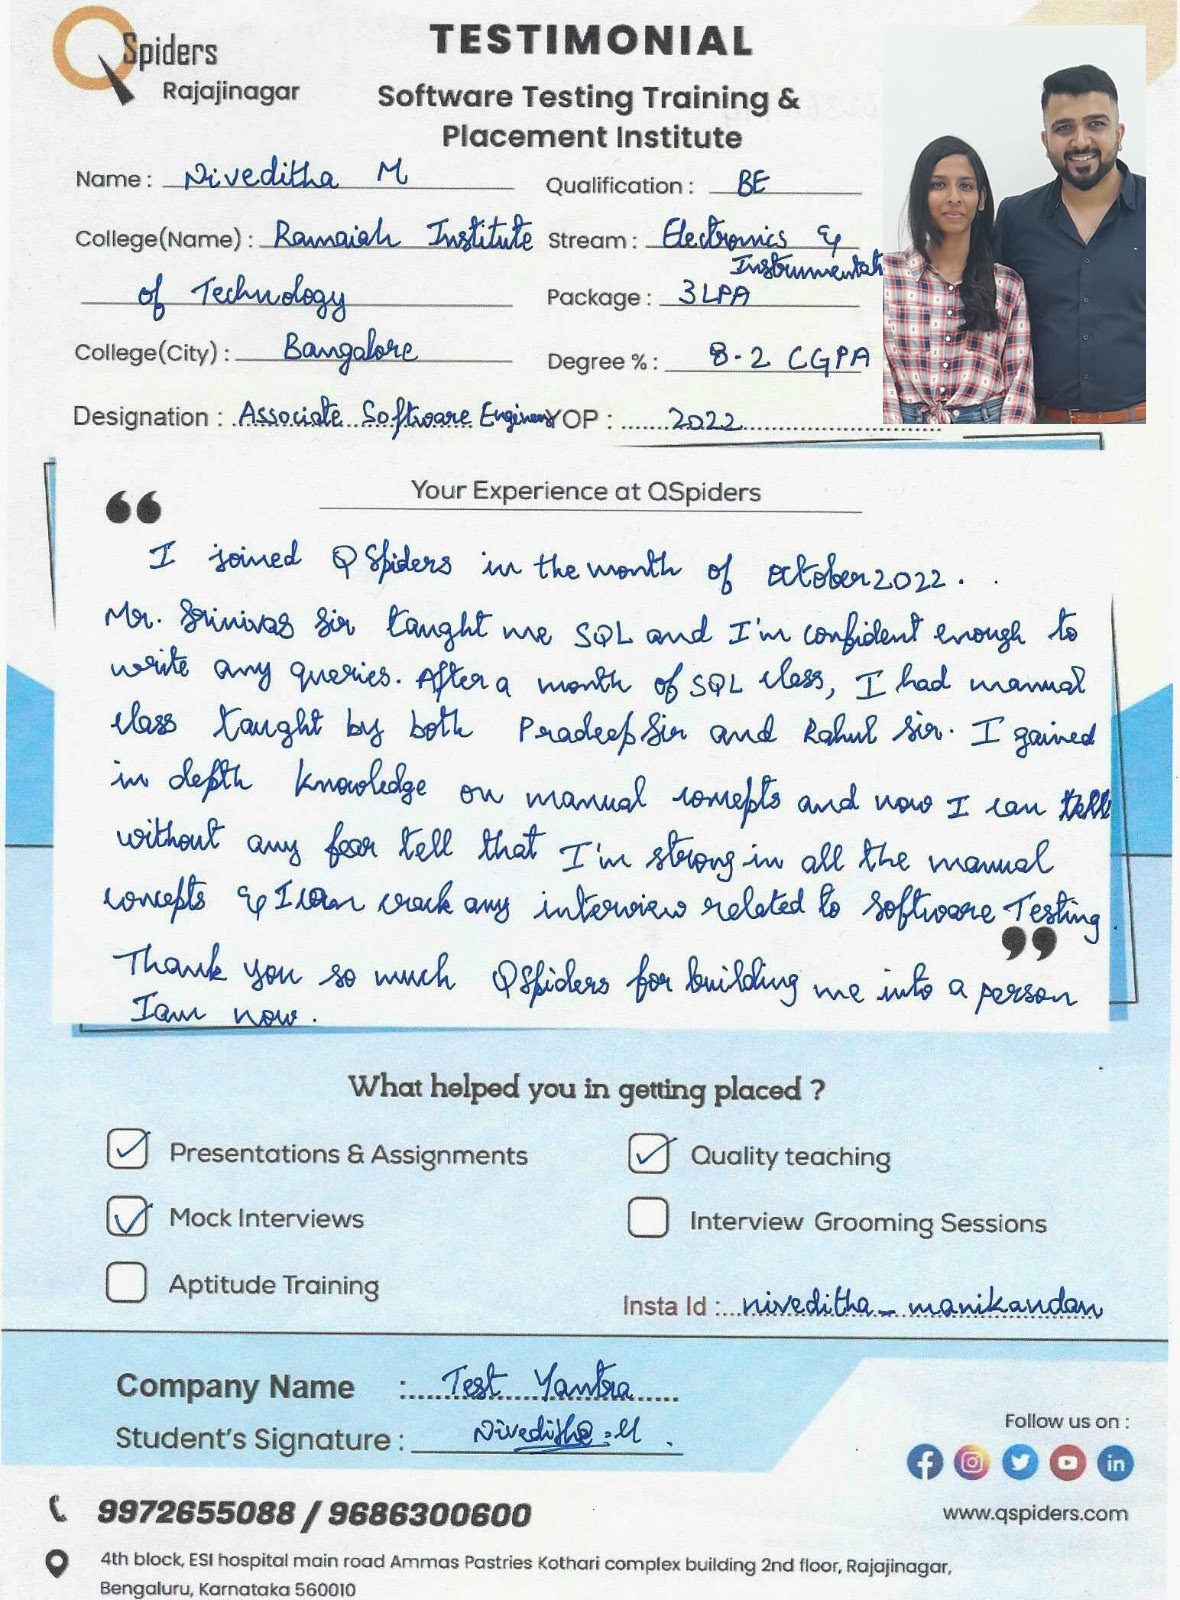 QSpiders
Rajajinagar
TESTIMONIAL
Software Testing Training &
Placement Institute
Name : Niveditha M
Qualification : BE
College(Name) : Ramaiah Institute
of Technology
Stream : Electronics &
Instrumentat
Package : 3 LPA
College(City) : Bangalore
Degree % : 8.2 CGPA
Designation : Associate Software Engineer
YOP : 2022
Your Experience at QSpiders
I joined QSpiders in the month of october 2022.
Mr. Srinivas Sir taught me SQL and I'm confident enough to
write any queries. After a month of SQL class, I had manual
class taught by both Pradeep Sir and Rahul Sir. I gained
in depth knowledge on manual concepts and now I can
without any fear tell that I'm strong in all the manual
concepts & I can crack any interview related to Software Testing.
Thank you so much QSpiders for building me into a person
I am now.
What helped you in getting placed ?
Presentations & Assignments
Quality teaching
Mock Interviews
Interview Grooming Sessions
Aptitude Training
Insta Id : niveditha_manikandan
Company Name : Test Yantra
Student's Signature : Niveditha.M
Follow us on :
9972655088 / 9686300600
www.qspiders.com
4th block, ESI hospital main road Ammas Pastries Kothari complex building 2nd floor, Rajajinagar,
Bengaluru, Karnataka 560010